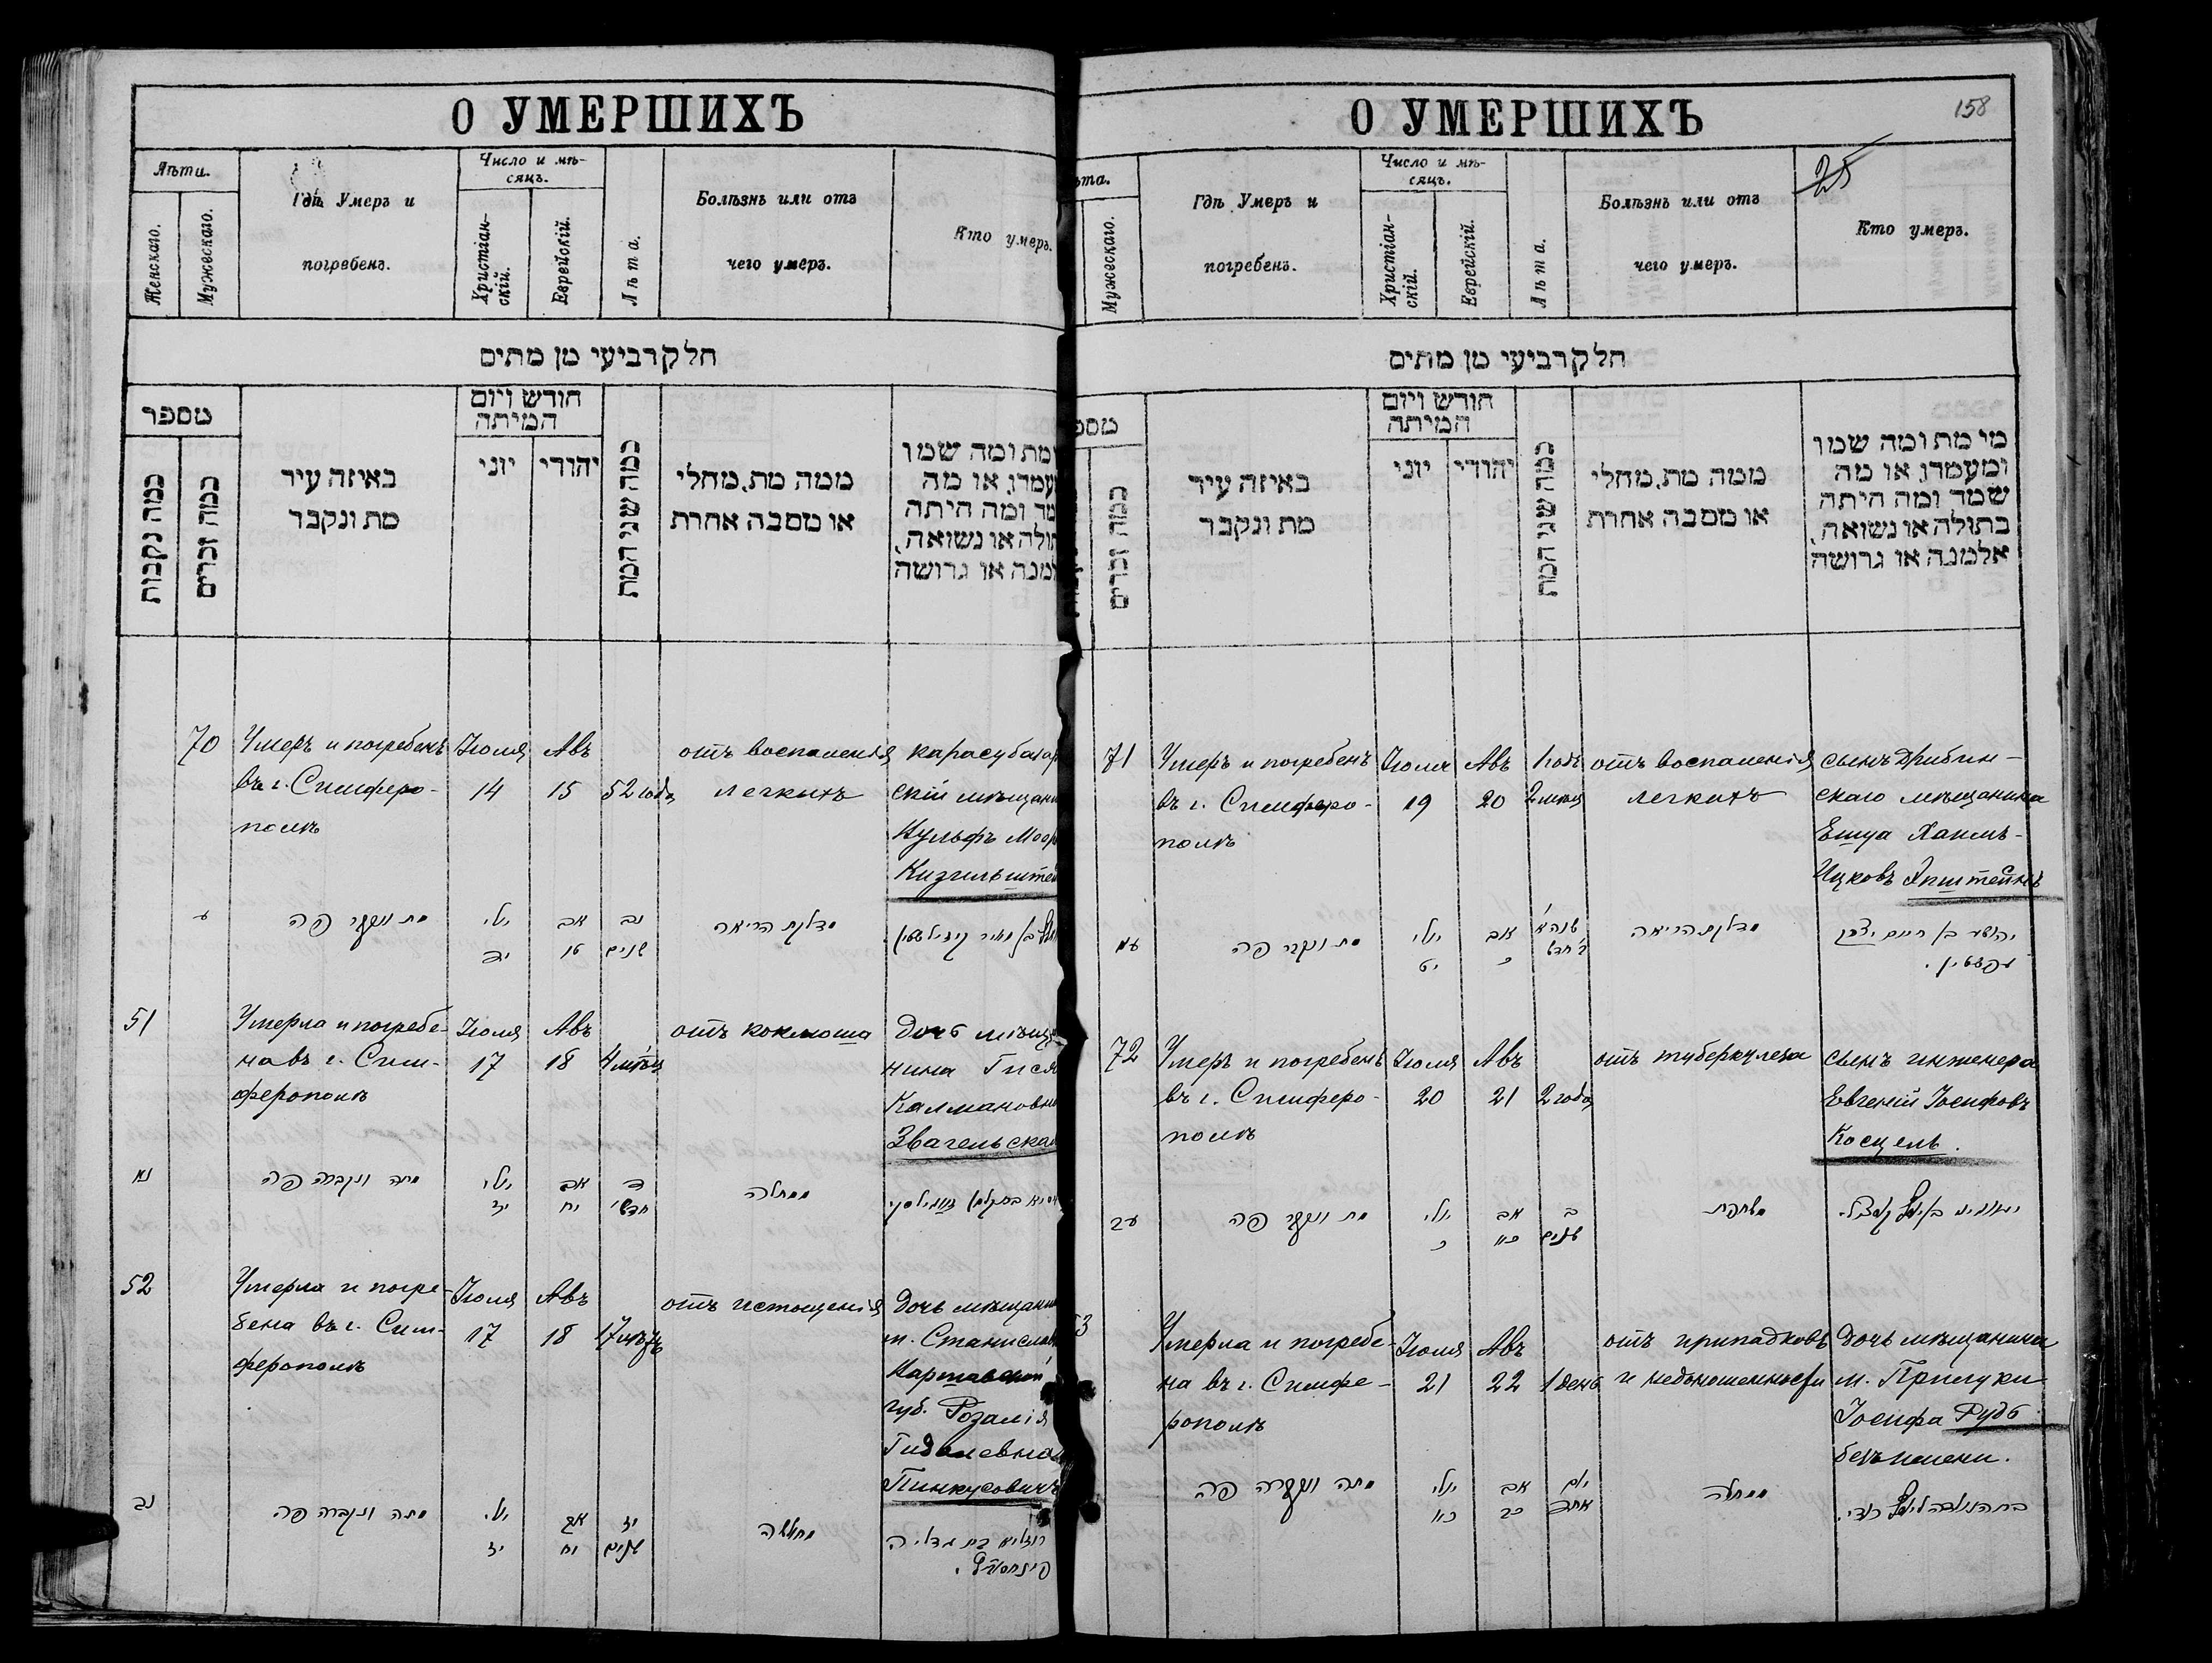 О УМЕРШИХЪ
Лѣти.
Женскаго.
Мужескаго.
Гдѣ Умеръ и
погребенъ.
Число и мѣ-
сяцъ.
Христіан-
скій.
Еврейскій.
Лѣта.
Болѣзнь или отъ
чего умеръ.
Кто умеръ.
חלק רביעי מן מתים
מספר
כמה נקבות
כמה זכרים
באיזה עיר
מת ונקבר
חודש ויום
המיתה
יוני
יהודי
כמה שני המת
ממה מת, מחלי
או מסבה אחרת
ומת ומה שמו
עמדו, או מה
מד ומה היתה
תולה או נשואה,
מנה או גרושה
70
Умеръ и погребенъ
въ г. Симферо-
полѣ
Іюля
14
Авъ
15
52 года
отъ воспаленія
легкихъ
карасубазар
скій мѣщани
Вульфъ Меер
Кизильштей
ע
מת ונקבר פה
יולי
יד
אב
טו
נב
שנים
מדלקת הריאה
בן מאיר קיזילשטיין
51
Умерла и погребе-
на въ г. Сим-
ферополѣ
Іюля
17
Авъ
18
4 мѣсяц
отъ коклюша
дочь мѣща
нина Гися
Калмановна
Звагельская
נא
מתה ונקברה פה
יולי
יז
אב
יח
ד
חדשי
ממחלה
52
Умерла и погре-
бена въ г. Сим-
ферополѣ
Іюля
17
Авъ
18
17 лѣтъ
отъ истощенія
дочь мѣщани
м. Станислав
Варшавской
губ. Розалія
Гидалевна
Пинкусовичъ
נב
מתה ונקברה פה
יולי
יז
אב
יח
יז
שנים
מחולשה
רוזליא בת גדליה
О УМЕРШИХЪ
158
25
ѣта.
Мужескаго.
Гдѣ Умеръ и
погребенъ.
Число и мѣ-
сяцъ.
Христіан-
скій.
Еврейскій.
Лѣта.
Болѣзнь или отъ
чего умеръ.
Кто умеръ.
חלק רביעי מן מתים
מספ
כמה זכרים
באיזה עיר
מת ונקבר
חודש ויום
המיתה
יוני
יהודי
כמה שני המת
ממה מת, מחלי
או מסבה אחרת
מי מת ומה שמו
ומעמדו, או מה
שמד ומה היתה
בתולה או נשואה,
אלמנה או גרושה
71
Умеръ и погребенъ
въ г. Симферо-
полѣ
Іюля
19
Авъ
20
1 годъ
2 мѣся
отъ воспаленія
легкихъ
сынъ Дрибин-
скаго мѣщанина
Ешуа Хаимъ-
Ицковъ Эпштейнъ
עא
מת ונקבר פה
יולי
יט
אב
כ
שנה א'
ב' חדש
מדלקת הריאה
יהושע בן חיים יצחק
עפשטיין.
72
Умеръ и погребенъ
въ г. Симферо-
полѣ
Іюля
20
Авъ
21
2 года
отъ туберкулеза
сынъ инженера
Евгеній Іосифовъ
Косцель.
עב
מת ונקבר פה
יולי
כ
אב
כא
ב
שנים
משחפת
53
Умерла и погребе-
на въ г. Симфе-
рополѣ
Іюля
21
Авъ
22
1 день
отъ припадковъ
и недоношенности
дочь мѣщанина
м. Прилуки
Іосифа Рудь
безъ имени.
מתה ונקברה פה
יולי
כא
אב
כב
יום
אחד
ממחלה
בת הנולדה ליוסף רודי.